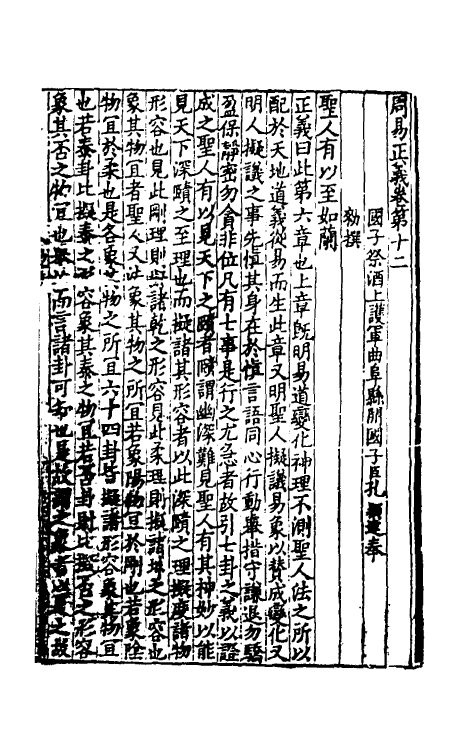 周易正義卷第十二
國子祭酒上護軍曲阜縣開國子臣孔穎達奉
勑撰
聖人有以至如蘭
正義曰此第六章也上章旣明易道變化神理不測聖人法之所以
配於天地道義從易而生此章又明聖人擬議易象以贊成變化又
明人擬議之事先愼其身在於愼言語同心行動舉措守謙退勿驕
盈保靜密勿貪非位凡有七事是行之尤急者故引七卦之義以證
成之聖人有以見天下之賾者賾謂幽深難見聖人有其神妙以能
見天下深賾之至理也而擬諸其形容者以此深賾之理擬度諸物
形容也見此剛理則擬諸乾之形容見此柔理則擬諸坤之形容也
象其物宜者聖人又法象其物之所宜若象陽物宜於剛也若象陰
物宜於柔也是各象其物之所宜六十四卦皆擬諸形容象其物宜
也若泰卦比擬泰之形容象其泰之物宜若否卦則比擬否之形容
象其否之物宜也舉此而言諸卦可知也是故謂之象者以是之故